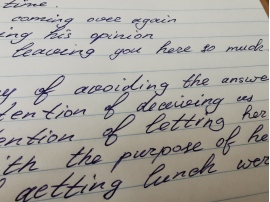 time.
coming over again
ing his opinion
leaving you here so much
y of avoiding the answe
tention of deceiving us
ention of letting her
ith the purpose of he
f getting lunch wer